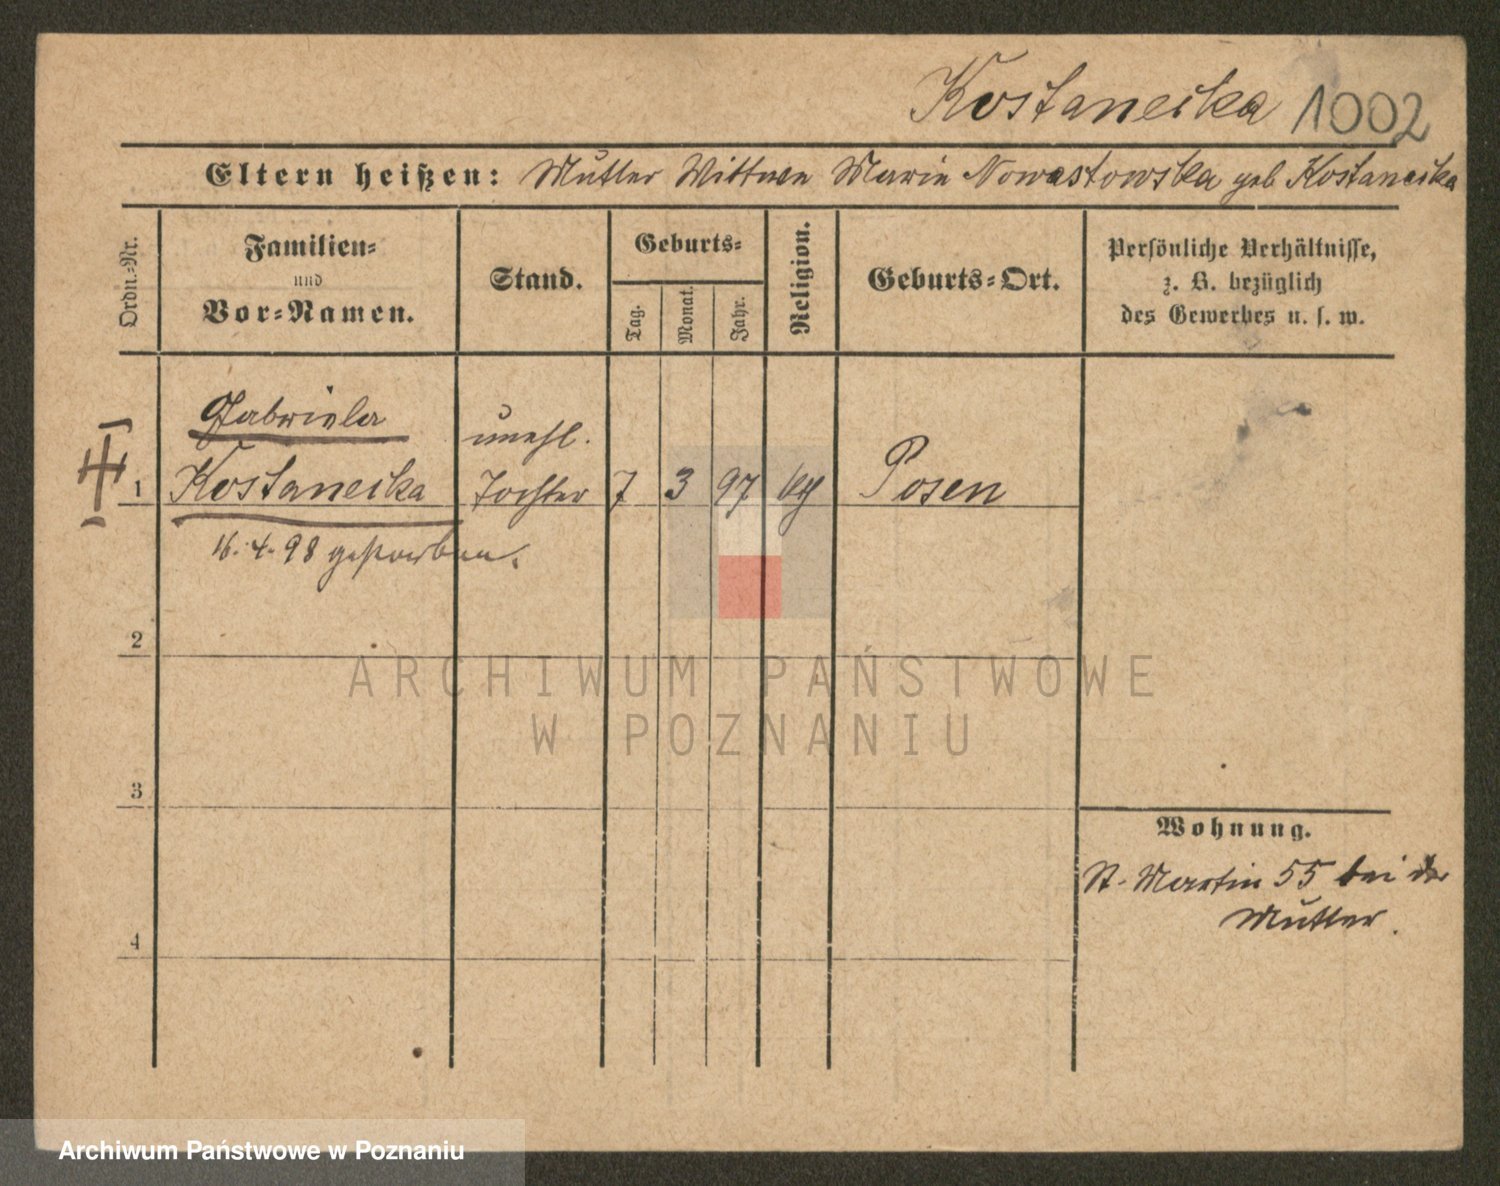 Kostanecka 1002
Eltern heißen: Mutter Wittwe Marie Nowastowska geb Kostanecka
Ordn.-Nr.
Familien-
und
Vor-Namen.
Stand.
Geburts-
Tag.
Monat.
Jahr.
Religion.
Geburts-Ort.
Persönliche Verhältnisse,
z. B. bezüglich
des Gewerbes u. s. w.
Gabriela
unehl.
1 Kostanecka Tochter 7 3 97 kth Posen
16. 4. 98 gestorben.
2
ARCHIWUM PAŃSTWOWE
W POZNANIU
3
Wohnung.
St. Martin 55 bei der
Mutter.
4
Archiwum Państwowe w Poznaniu